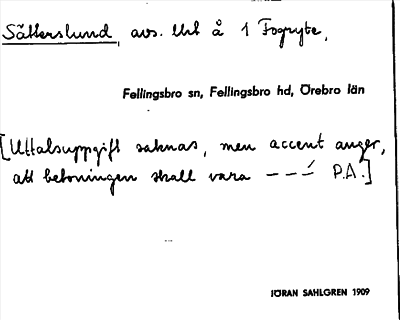 Sätterslund, avs. lht å 1 Fogryte,
Fellingsbro sn, Fellingsbro hd, Örebro län
[Uttalsuppgift saknas, men accent anger,
att betoningen skall vara – – –́ P.A.]
JÖRAN SAHLGREN 1909